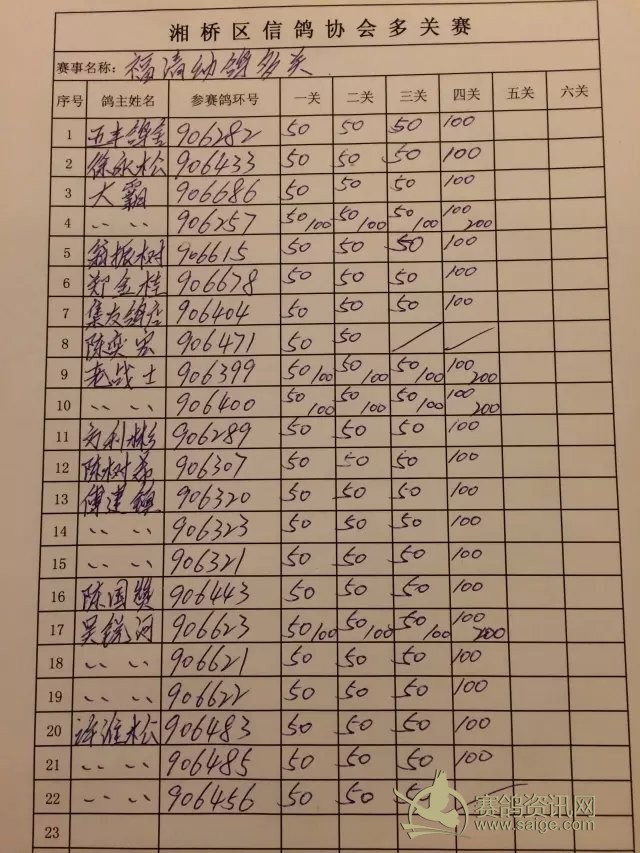 湘桥区信鸽协会多关赛
赛事名称: 福清幼鸽多关
序号 鸽主姓名 参赛鸽环号 一关 二关 三关 四关 五关 六关
1 五丰鸽舍 906282 50 50 50 100
2 徐永松 906433 50 50 50 100
3 大霸 906686 50 50 50 100
4 〃 〃 906257 50/100 50/100 50/100 100/200
5 翁振树 906615 50 50 50 100
6 郑金桂 906678 50 50 50 100
7 集友鸽店 906404 50 50 50 100
8 陈奕宏 906471 50 50 / /
9 老战士 906399 50/100 50/100 50/100 100/200
10 〃 〃 906400 50/100 50/100 50/100 100/200
11 利彬 906289 50 50 50 100
12 陈树 906307 50 50 50 100
13 906320 50 50 50 100
14 〃 〃 906323 50 50 50 100
15 〃 〃 906321 50 50 50 100
16 陈国 906443 50 50 50 100
17 吴 河 906623 50/100 50/100 50/100 100/200
18 〃 〃 906621 50 50 50 100
19 〃 〃 906622 50 50 50 100
20 许淮松 906483 50 50 50 100
21 〃 〃 906485 50 50 50 100
22 〃 〃 906456 50 50 50
23
赛鸽资讯网
www.saige.com